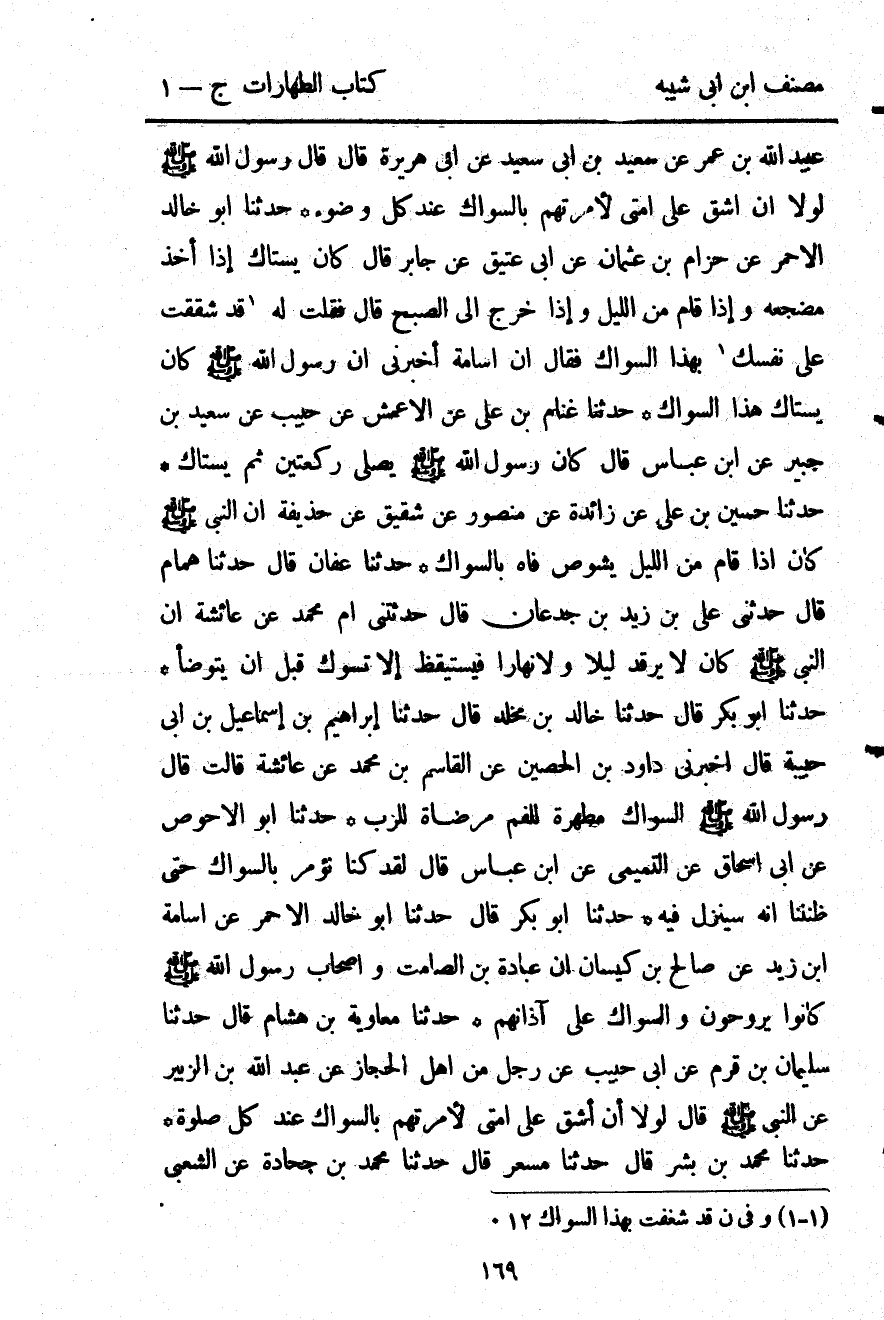 مصنف ابن ابى شيبه كتاب الطهارات ج — ١
عبيد الله بن عمر عن سعيد بن ابى سعيد عن ابى هريرة قال قال رسول الله ﷺ
لولا ان اشق على امتى لأمرتهم بالسواك عند كل وضوء * حدثنا ابو خالد
الاحمر عن حزام بن عثمان عن ابى عتيق عن جابر قال كان يستاك إذا أخذ
مضجعه و إذا قام من الليل و إذا خرج الى الصبح قال فقلت له ١قد شققت
على نفسك١ بهذا السواك فقال ان اسامة أخبرنى ان رسول الله ﷺ كان
يستاك هذا السواك * حدثنا غنام بن على عن الاعمش عن حبيب عن سعيد بن
جبير عن ابن عباس قال كان رسول الله ﷺ يصلى ركعتين ثم يستاك *
حدثنا حسين بن على عن زائدة عن منصور عن شقيق عن حذيفة ان النبى ﷺ
كان اذا قام من الليل يشوص فاه بالسواك * حدثنا عفان قال حدثنا همام
قال حدثنى على بن زيد بن جدعان قال حدثتنى ام محمد عن عائشة ان
النبى ﷺ كان لا يرقد ليلا و لا نهارا فيستيقظ إلا تسوك قبل ان يتوضأ *
حدثنا ابو بكر قال حدثنا خالد بن مخلد قال حدثنا إبراهيم بن إسماعيل بن ابى
حبيبة قال اخبرنى داود بن الحصين عن القاسم بن محمد عن عائشة قالت قال
رسول الله ﷺ السواك مطهرة للفم مرضاة للرب * حدثنا ابو الاحوص
عن ابى اسحاق عن التميمى عن ابن عباس قال لقد كنا نؤمر بالسواك حتى
ظننا انه سينزل فيه * حدثنا ابو بكر قال حدثنا ابو خالد الاحمر عن اسامة
ابن زيد عن صالح بن كيسان ان عبادة بن الصامت و اصحاب رسول الله ﷺ
كانوا يروحون و السواك على آذانهم * حدثنا معاوية بن هشام قال حدثنا
سليمان بن قرم عن ابى حبيب عن رجل من اهل الحجاز عن عبد الله بن الزبير
عن النبى ﷺ قال لولا أن أشق على امتى لأمرتهم بالسواك عند كل صلوة *
حدثنا محمد بن بشر قال حدثنا مسعر قال حدثنا محمد بن جحادة عن الشعبى
(١-١) و فى ن قد شغفت بهذا السواك ١٢ ٠
١٦٩